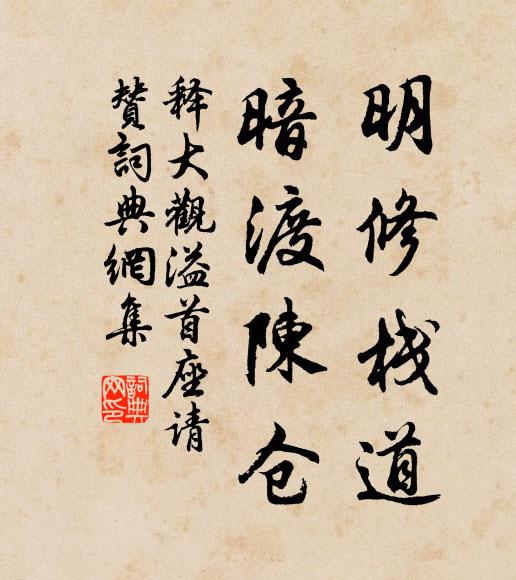 明修栈道
暗渡陳仓
释大觀溢首座请
赞詞典網集
詞典网印